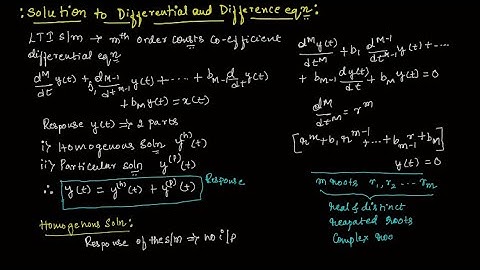 : Solution to Differential and Difference eqn :
LTI s/m → mth order consts co-efficient
differential eqn
d^M/dt y(t) + b₁ d^(M-1)/dt^(M-1) y(t) + ---- + b_(M-1) d/dt y(t)
+ b_M y(t) = x(t)
Response y(t) ⇒ 2 parts
i) Homogenous soln y^(h)(t)
ii) Particular soln y^(p)(t)
∴ y(t) = y^(h)(t) + y^(p)(t) Response
Homogenous Soln:
Response of the s/m ⇒ no i/p
d^M y(t)/dt^M + b₁ d^(M-1)/dt^(M-1) y(t) + ----
+ b_(M-1) dy(t)/dt + b_M y(t) = 0
d^M/dt^M = r^m
[r^m + b₁ r^(m-1) + ... + b_(m-1) r + b_M]
y(t) = 0
m roots r₁, r₂ --- r_m
real & distinct
repeated roots
Complex roo